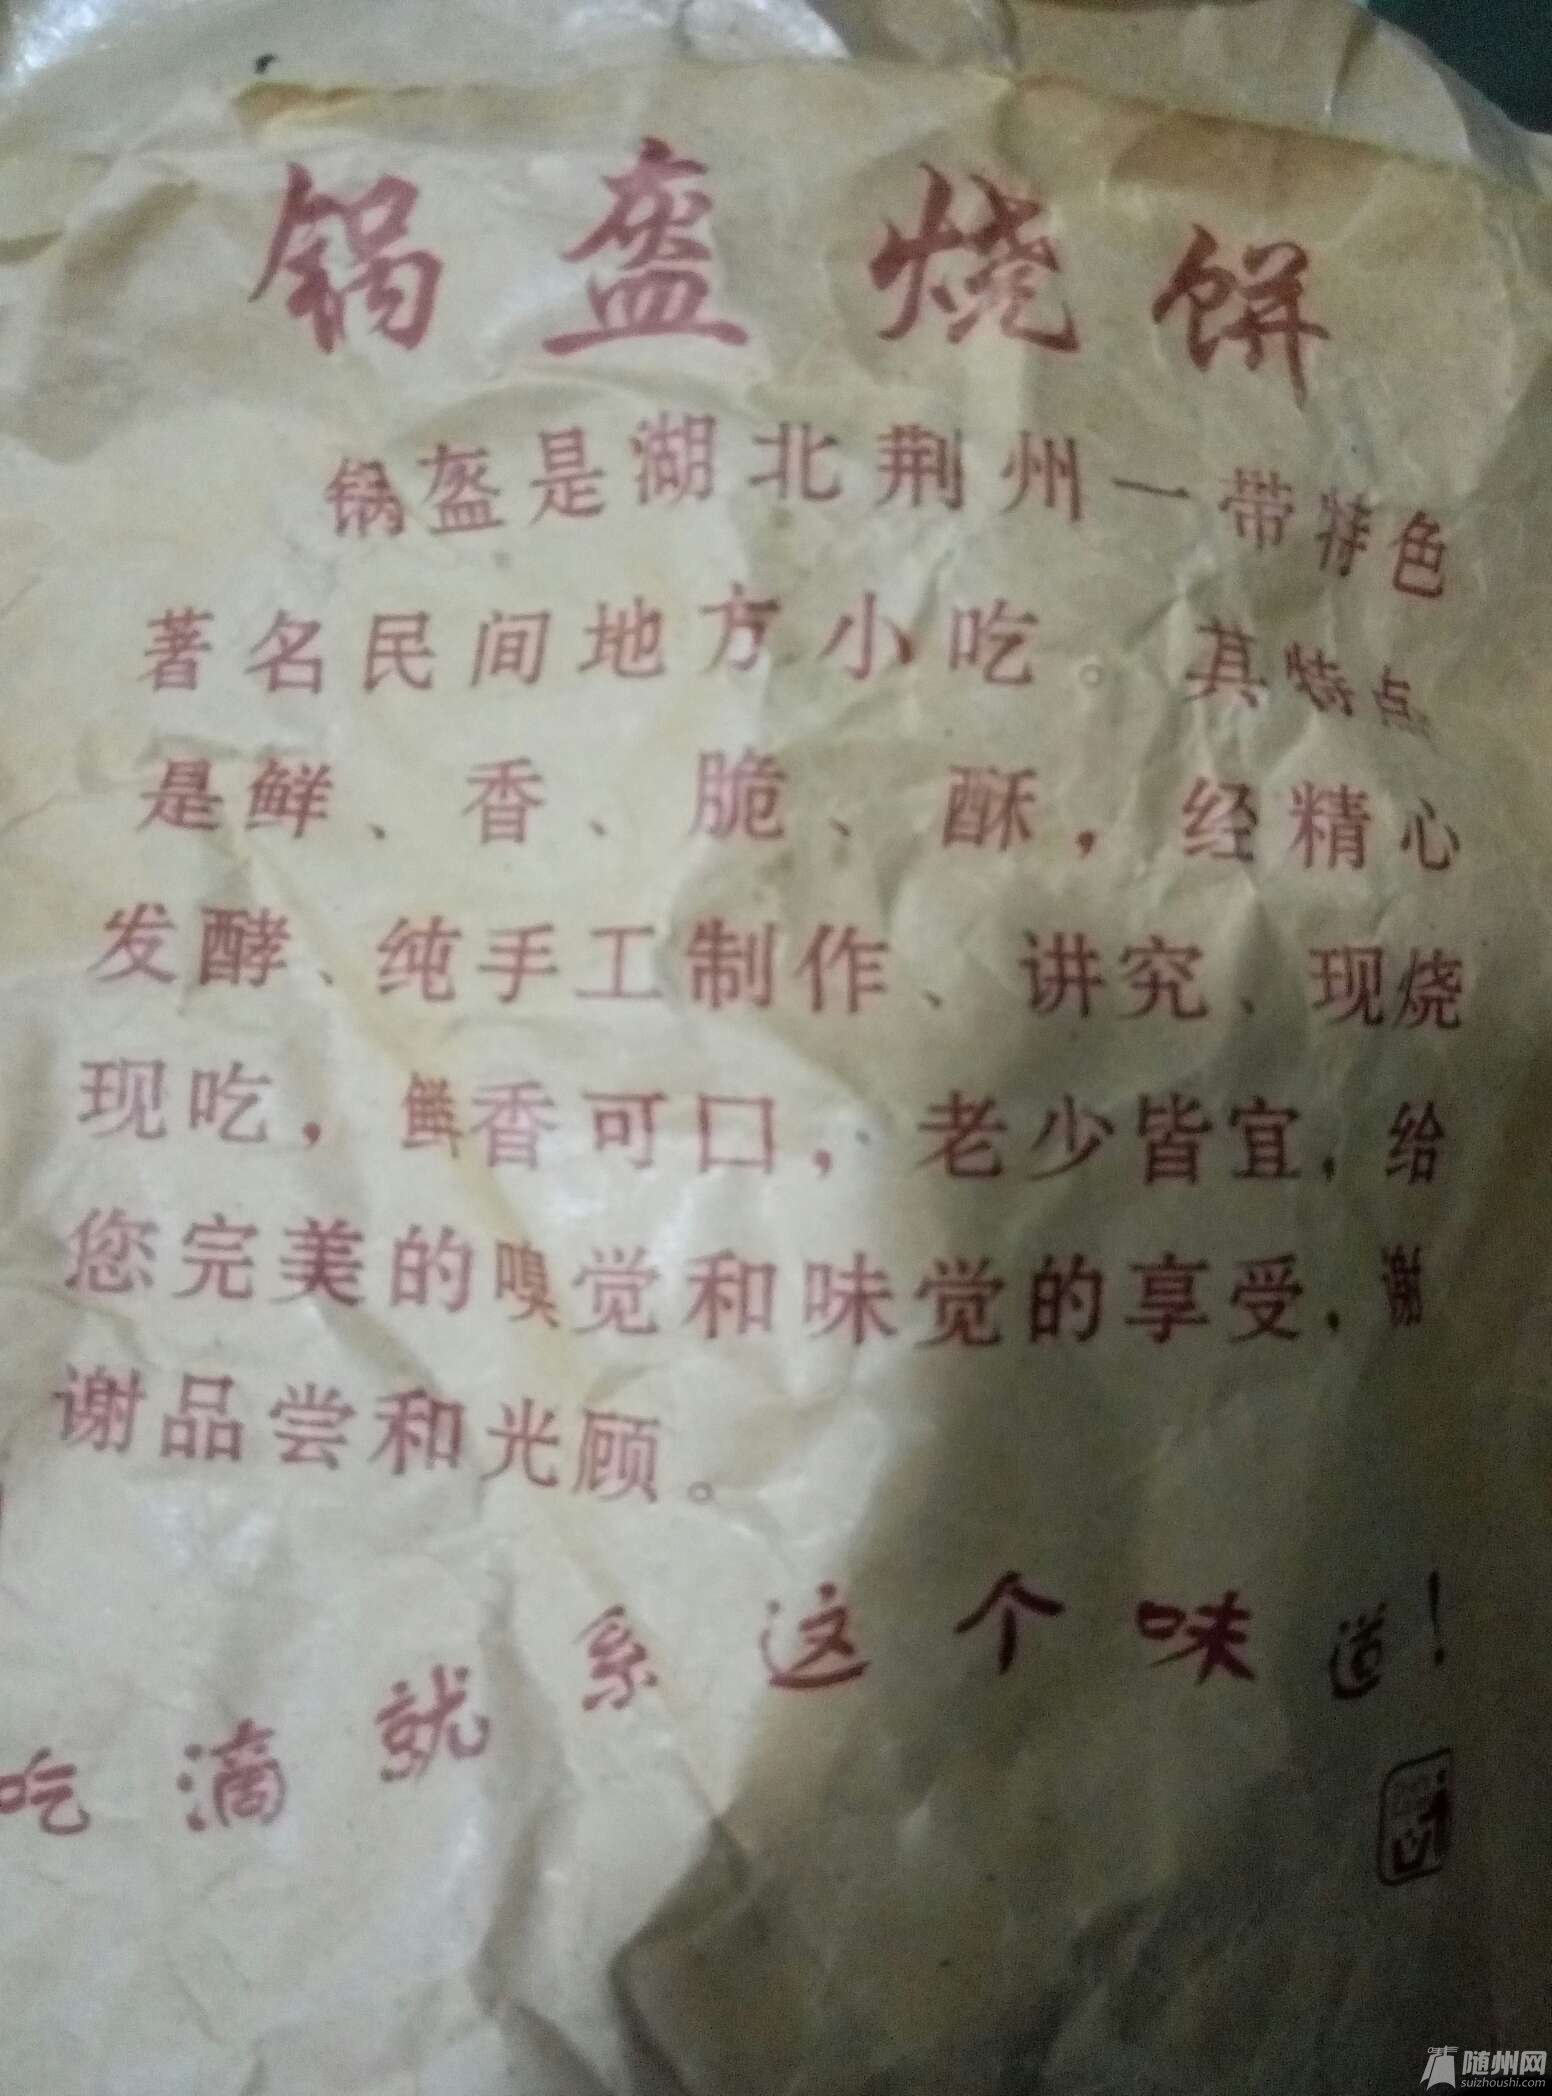 锅盔烧饼
锅盔是湖北荆州一带特色
著名民间地方小吃。其特点
是鲜、香、脆、酥，经精心
发酵、纯手工制作、讲究、现烧
现吃，鲜香可口，老少皆宜，给
您完美的嗅觉和味觉的享受，谢
谢品尝和光顾。
吃滴就系这个味道！
随州网
suizhoushi.com